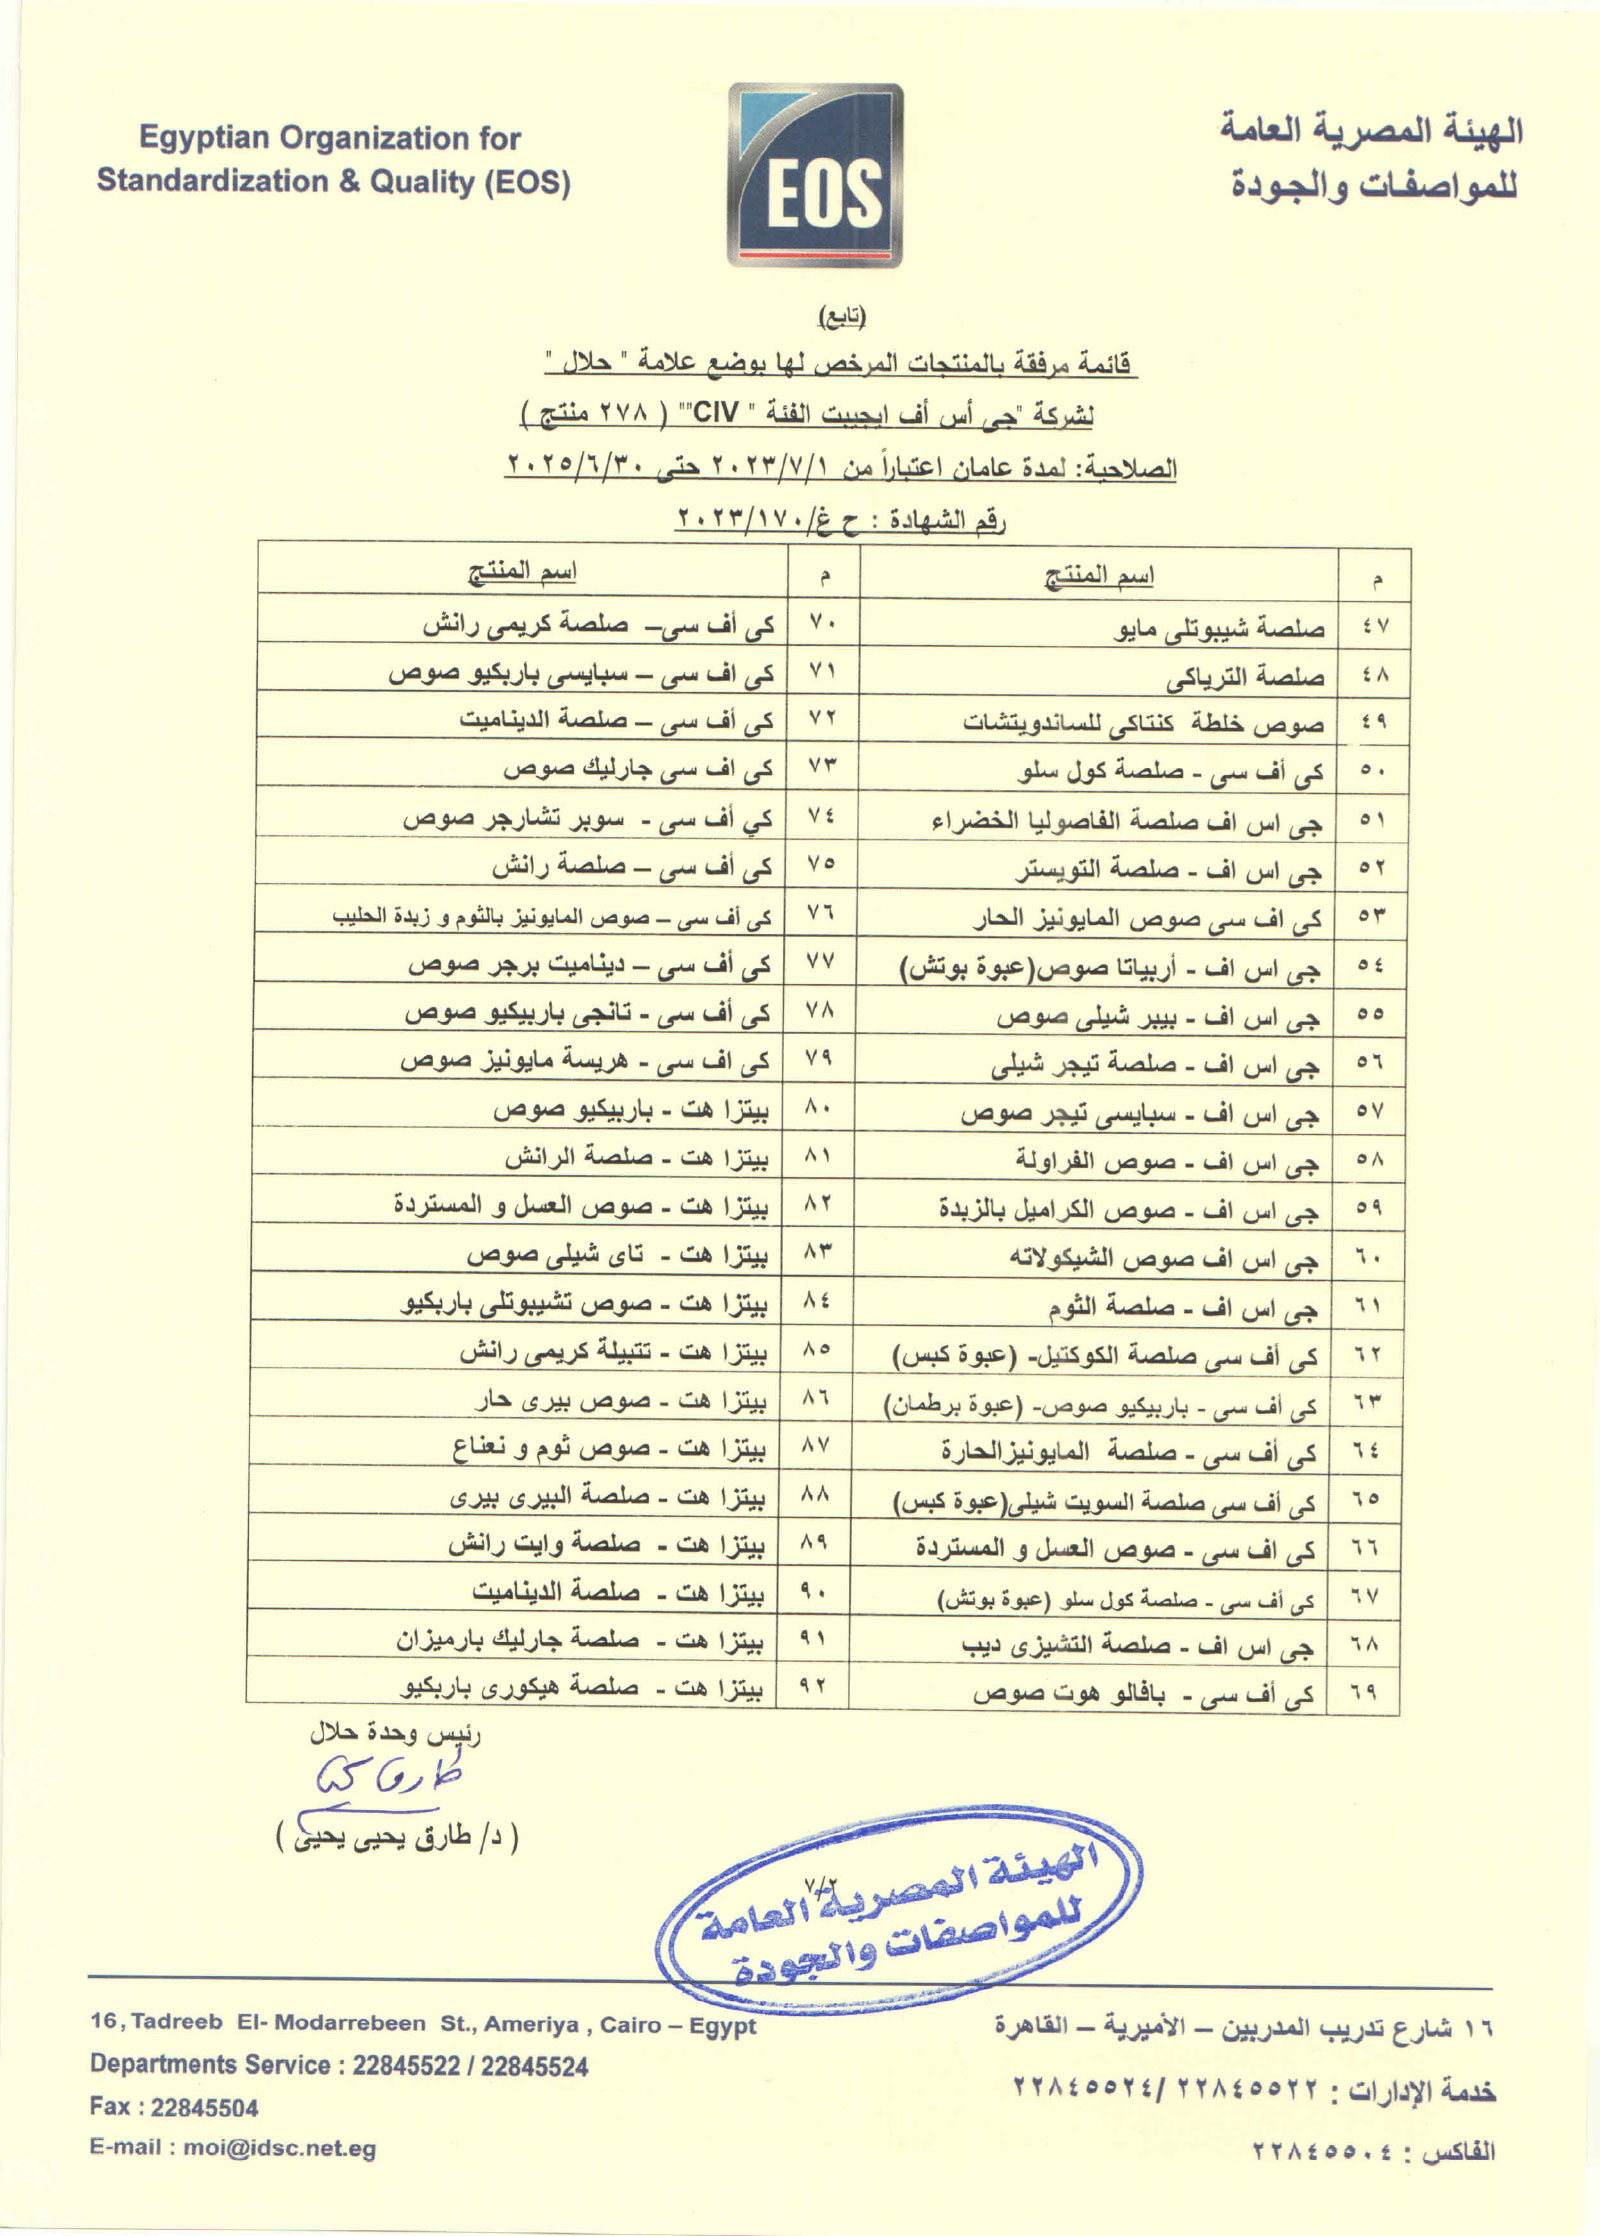 Egyptian Organization for
Standardization & Quality (EOS)
EOS
الهيئة المصرية العامة
للمواصفات والجودة
(تابع)
قائمة مرفقة بالمنتجات المرخص لها بوضع علامة " حلال "
لشركة "جى أس أف ايجيبت الفئة " CIV"" ( ٢٧٨ منتج )
الصلاحية: لمدة عامان اعتباراً من ٢٠٢٣/٧/١ حتى ٢٠٢٥/٦/٣٠
رقم الشهادة : ح غ/٢٠٢٣/١٧٠
م اسم المنتج م اسم المنتج
٤٧ صلصة شيبوتلى مايو ٧٠ كى أف سى– صلصة كريمى رانش
٤٨ صلصة الترياكى ٧١ كى اف سى – سبايسى باربكيو صوص
٤٩ صوص خلطة كنتاكى للساندويتشات ٧٢ كى أف سى – صلصة الديناميت
٥٠ كى أف سى - صلصة كول سلو ٧٣ كى اف سى جارليك صوص
٥١ جى اس اف صلصة الفاصوليا الخضراء ٧٤ كي أف سى - سوبر تشارجر صوص
٥٢ جى اس اف - صلصة التويستر ٧٥ كى أف سى – صلصة رانش
٥٣ كى اف سى صوص المايونيز الحار ٧٦ كى أف سى – صوص المايونيز بالثوم و زبدة الحليب
٥٤ جى اس اف - أربياتا صوص(عبوة بوتش) ٧٧ كى أف سى – ديناميت برجر صوص
٥٥ جى اس اف - بيبر شيلى صوص ٧٨ كى أف سى - تانجى باربيكيو صوص
٥٦ جى اس اف - صلصة تيجر شيلى ٧٩ كى اف سى - هريسة مايونيز صوص
٥٧ جى اس اف - سبايسى تيجر صوص ٨٠ بيتزا هت - باربيكيو صوص
٥٨ جى اس اف - صوص الفراولة ٨١ بيتزا هت - صلصة الرانش
٥٩ جى اس اف - صوص الكراميل بالزبدة ٨٢ بيتزا هت - صوص العسل و المستردة
٦٠ جى اس اف صوص الشيكولاته ٨٣ بيتزا هت - تاى شيلى صوص
٦١ جى اس اف - صلصة الثوم ٨٤ بيتزا هت - صوص تشيبوتلى باربكيو
٦٢ كى أف سى صلصة الكوكتيل- (عبوة كبس) ٨٥ بيتزا هت - تتبيلة كريمى رانش
٦٣ كى أف سى - باربيكيو صوص- (عبوة برطمان) ٨٦ بيتزا هت - صوص بيرى حار
٦٤ كى أف سى - صلصة المايونيزالحارة ٨٧ بيتزا هت - صوص ثوم و نعناع
٦٥ كى أف سى صلصة السويت شيلى(عبوة كبس) ٨٨ بيتزا هت - صلصة البيرى بيرى
٦٦ كى اف سى - صوص العسل و المستردة ٨٩ بيتزا هت - صلصة وايت رانش
٦٧ كى أف سى - صلصة كول سلو (عبوة بوتش) ٩٠ بيتزا هت - صلصة الديناميت
٦٨ جى اس اف - صلصة التشيزى ديب ٩١ بيتزا هت - صلصة جارليك بارميزان
٦٩ كى أف سى - بافالو هوت صوص ٩٢ بيتزا هت - صلصة هيكورى باربكيو
رئيس وحدة حلال
( د/ طارق يحيى يحيى )
٧/٢
الهيئة المصرية العامة
للمواصفات والجودة
16, Tadreeb El- Modarrebeen St., Ameriya , Cairo – Egypt
Departments Service : 22845522 / 22845524
Fax : 22845504
E-mail : moi@idsc.net.eg
١٦ شارع تدريب المدربين – الأميرية – القاهرة
خدمة الإدارات : ٢٢٨٤٥٥٢٢ /٢٢٨٤٥٥٢٤
الفاكس : ٢٢٨٤٥٥٠٤